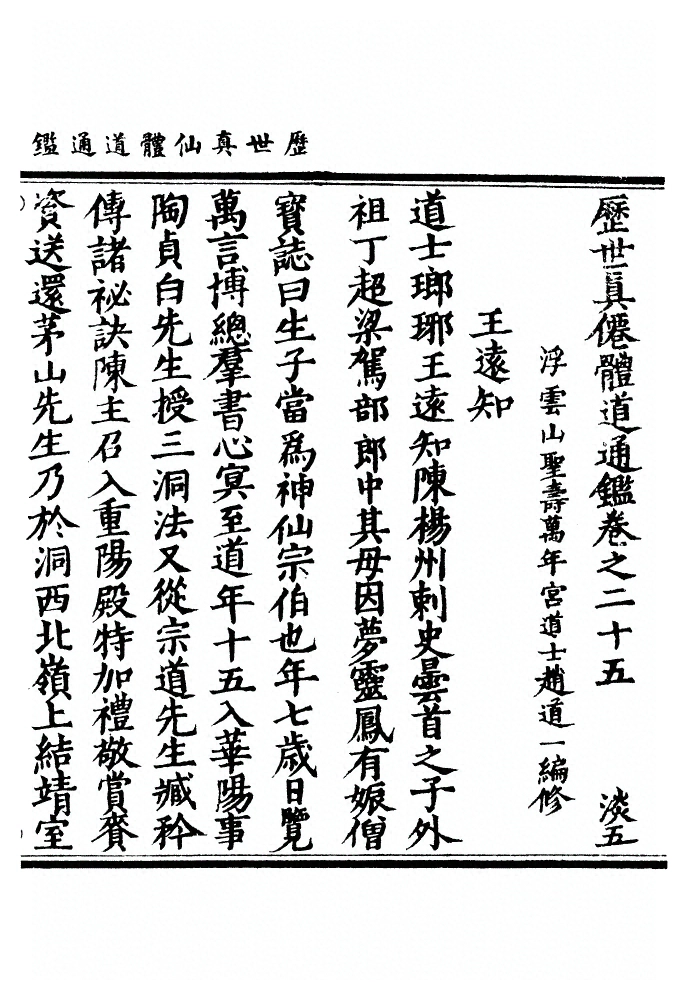 歷世真仙體道通鑑
歷世真僊體道通鑑卷之二十五 淡五
浮雲山聖壽萬年宮道士趙道一編修
王遠知
道士瑯琊王遠知陳楊州刺史曇首之子外
祖丁超梁駕部郎中其母因夢靈鳳有娠僧
寶誌曰生子當爲神仙宗伯也年七歲日覽
萬言博總羣書心冥至道年十五入華陽事
陶貞白先生授三洞法又從宗道先生臧矜
傳諸祕訣陳主召入重陽殿特加禮敬賞賚
資送還茅山先生乃於洞西北嶺上結靖室